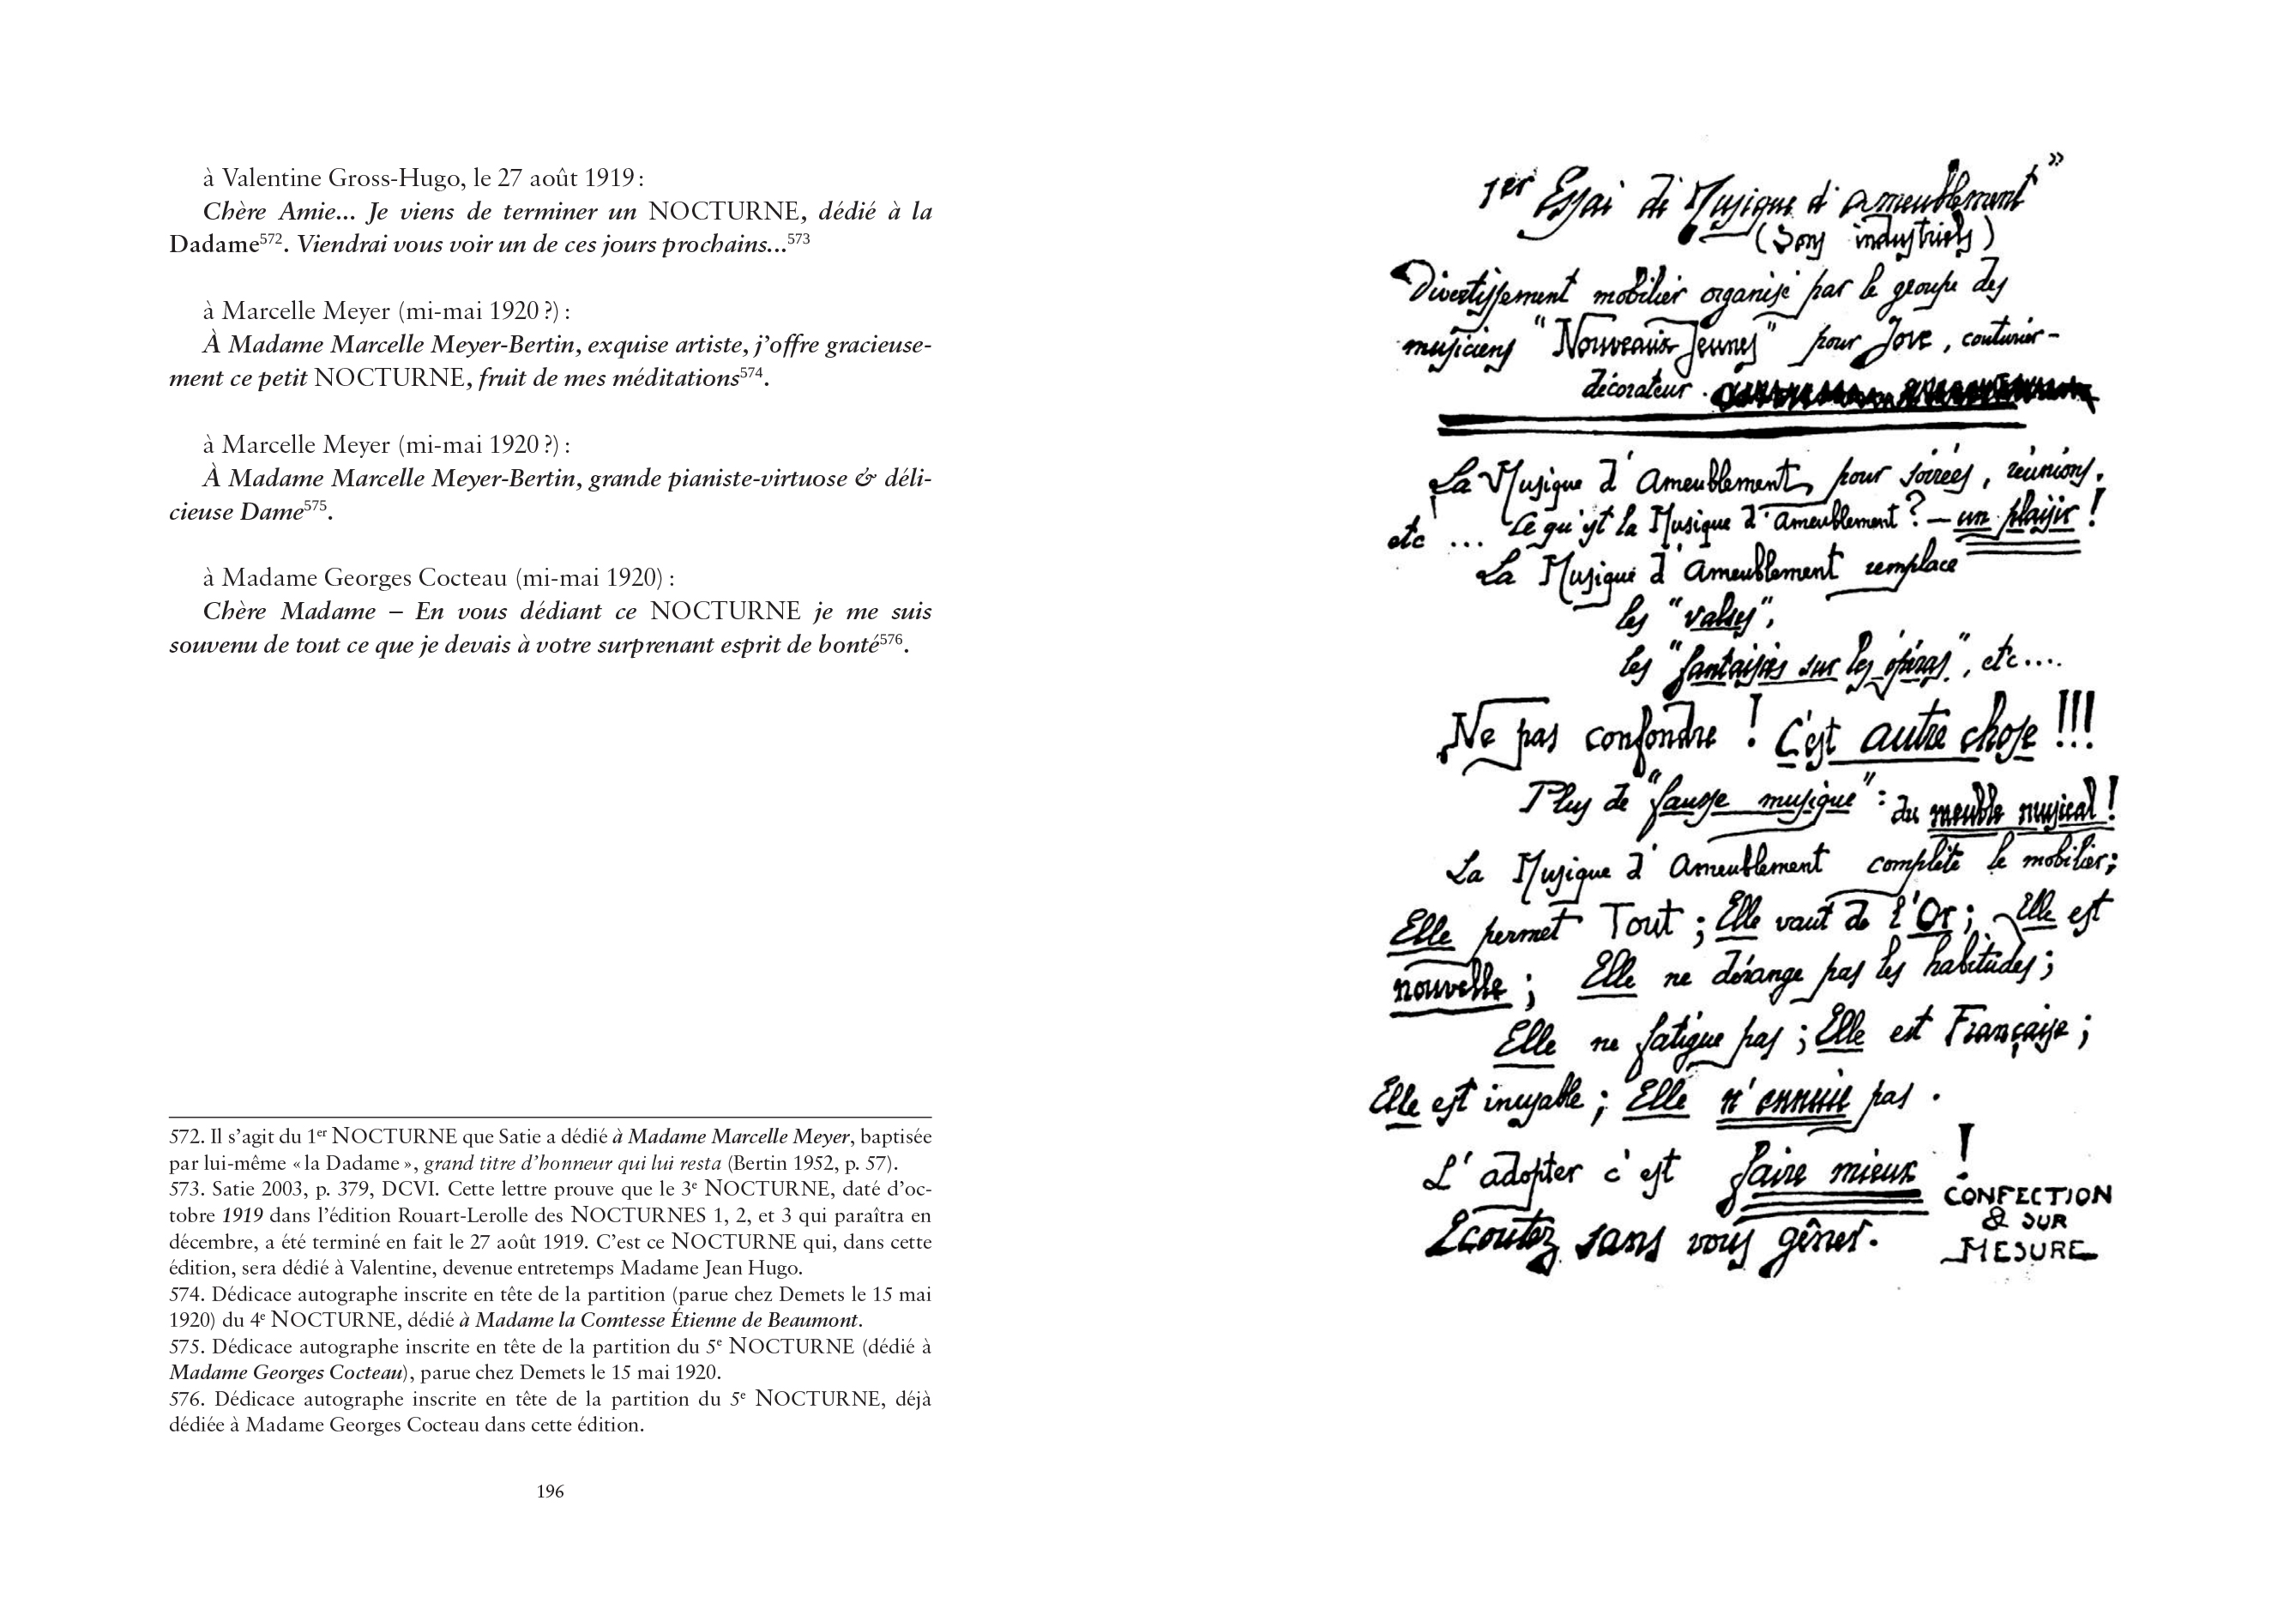 à Valentine Gross-Hugo, le 27 août 1919 :
Chère Amie... Je viens de terminer un NOCTURNE, dédié à la
Dadame572. Viendrai vous voir un de ces jours prochains...573
à Marcelle Meyer (mi-mai 1920 ?) :
À Madame Marcelle Meyer-Bertin, exquise artiste, j’offre gracieuse-
ment ce petit NOCTURNE, fruit de mes méditations574.
à Marcelle Meyer (mi-mai 1920 ?) :
À Madame Marcelle Meyer-Bertin, grande pianiste-virtuose & déli-
cieuse Dame575.
à Madame Georges Cocteau (mi-mai 1920) :
Chère Madame – En vous dédiant ce NOCTURNE je me suis
souvenu de tout ce que je devais à votre surprenant esprit de bonté576.
572. Il s’agit du 1er NOCTURNE que Satie a dédié à Madame Marcelle Meyer, baptisée
par lui-même « la Dadame », grand titre d’honneur qui lui resta (Bertin 1952, p. 57).
573. Satie 2003, p. 379, DCVI. Cette lettre prouve que le 3e NOCTURNE, daté d’oc-
tobre 1919 dans l’édition Rouart-Lerolle des NOCTURNES 1, 2, et 3 qui paraîtra en
décembre, a été terminé en fait le 27 août 1919. C’est ce NOCTURNE qui, dans cette
édition, sera dédié à Valentine, devenue entretemps Madame Jean Hugo.
574. Dédicace autographe inscrite en tête de la partition (parue chez Demets le 15 mai
1920) du 4e NOCTURNE, dédié à Madame la Comtesse Étienne de Beaumont.
575. Dédicace autographe inscrite en tête de la partition du 5e NOCTURNE (dédié à
Madame Georges Cocteau), parue chez Demets le 15 mai 1920.
576. Dédicace autographe inscrite en tête de la partition du 5e NOCTURNE, déjà
dédiée à Madame Georges Cocteau dans cette édition.
196
1er Essai de Musique d'ameublement"
(Sons industriels)
Divertissement mobilier organisé par le groupe des
musiciens "Nouveaux Jeunes" pour Jove, couturier-
décorateur.
La Musique d'Ameublement, pour soirées, réunions,
etc ... Ce qu'est la Musique d'ameublement? – un plaisir!
La Musique d'Ameublement remplace
les "valses",
les "fantaisies sur les opéras", etc....
Ne pas confondre ! C'est autre chose !!!
Plus de "fausse musique" : du meuble musical !
La Musique d'Ameublement complète le mobilier;
Elle permet Tout ; Elle vaut de l'Or ; Elle est
nouvelle ; Elle ne dérange pas les habitudes ;
Elle ne fatigue pas ; Elle est Française ;
Elle est inusable ; Elle n'ennuie pas.
L'adopter c'est faire mieux !
Ecoutez sans vous gêner.
CONFECTION
& SUR
MESURE